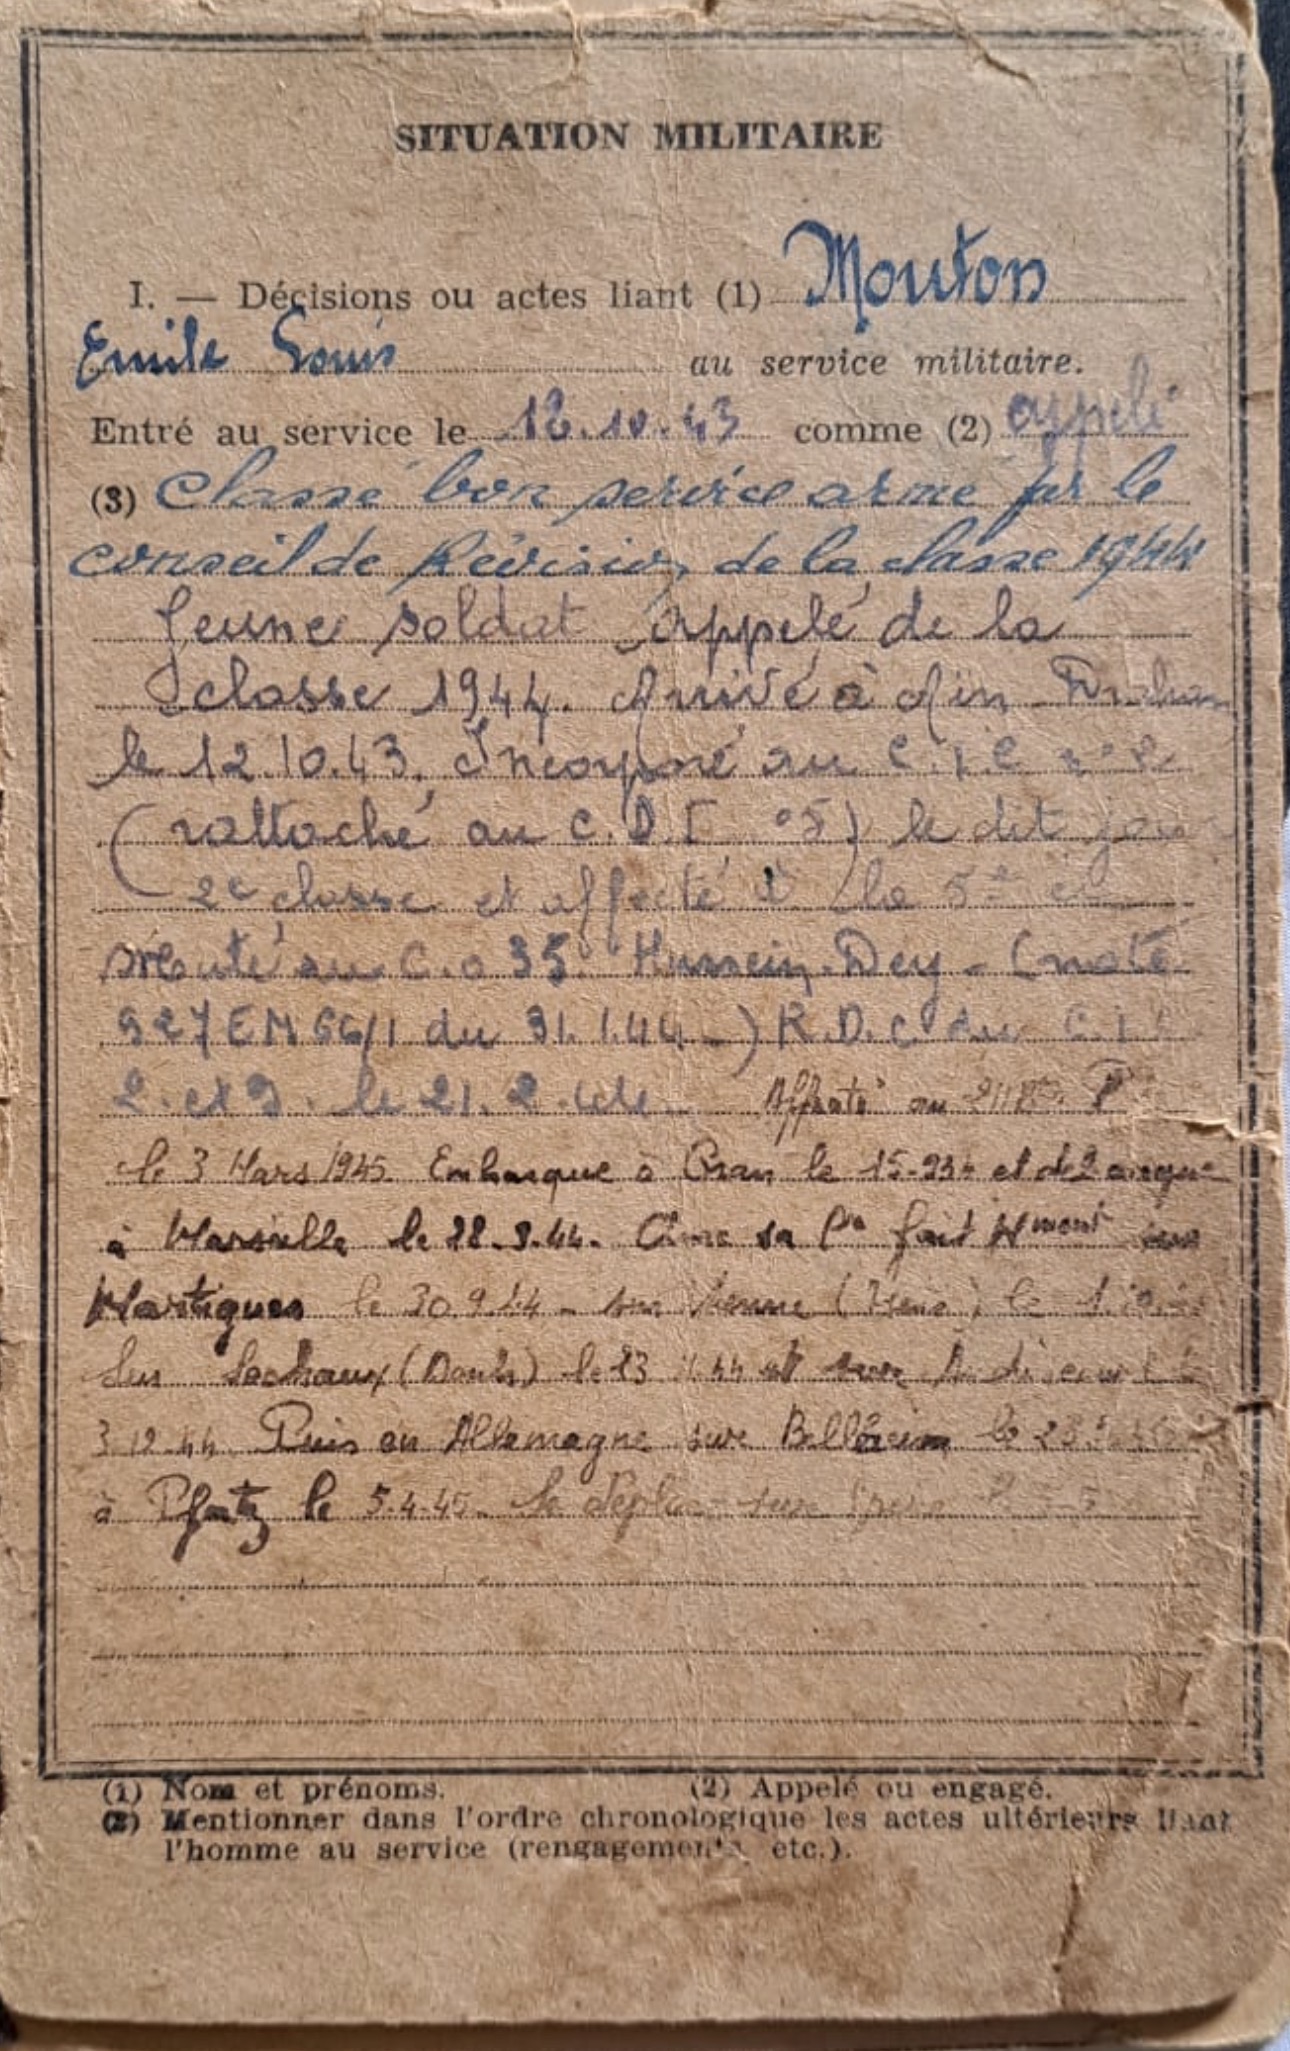 SITUATION MILITAIRE
I. — Décisions ou actes liant (1) Mouton
Emile Louis au service militaire.
Entré au service le 12.10.43 comme (2) appelé
(3) Classé bon service armé par le
conseil de Révision de la classe 1944
Jeune soldat appelé de la
classe 1944. Arrivé à Aïn
le 12.10.43. Incorporé au C.I.C n°
(rattaché au C.D.I °5) le dit jour
2e classe et affecté à la 5e
muté au C.O 35 Hussein-Dey - (note
927 EM 66/1 du 31.1.44 -) R.D.C du C.I
2. et 9. le 21.2.44 Affecté au
le 3 Mars 1945. Embarque à Oran le et
à Marseille le Avec sa Cie fait sur
Martigues le 30.9.44 - sur le
sur Sochaux (Doubs) le 23 44 et sur
3 12.44 Puis en Allemagne sur le
à Pfotz le 5.4.45. Se déplace sur
(1) Nom et prénoms. (2) Appelé ou engagé.
(3) Mentionner dans l'ordre chronologique les actes ultérieurs liant
l'homme au service (rengagements, etc.).